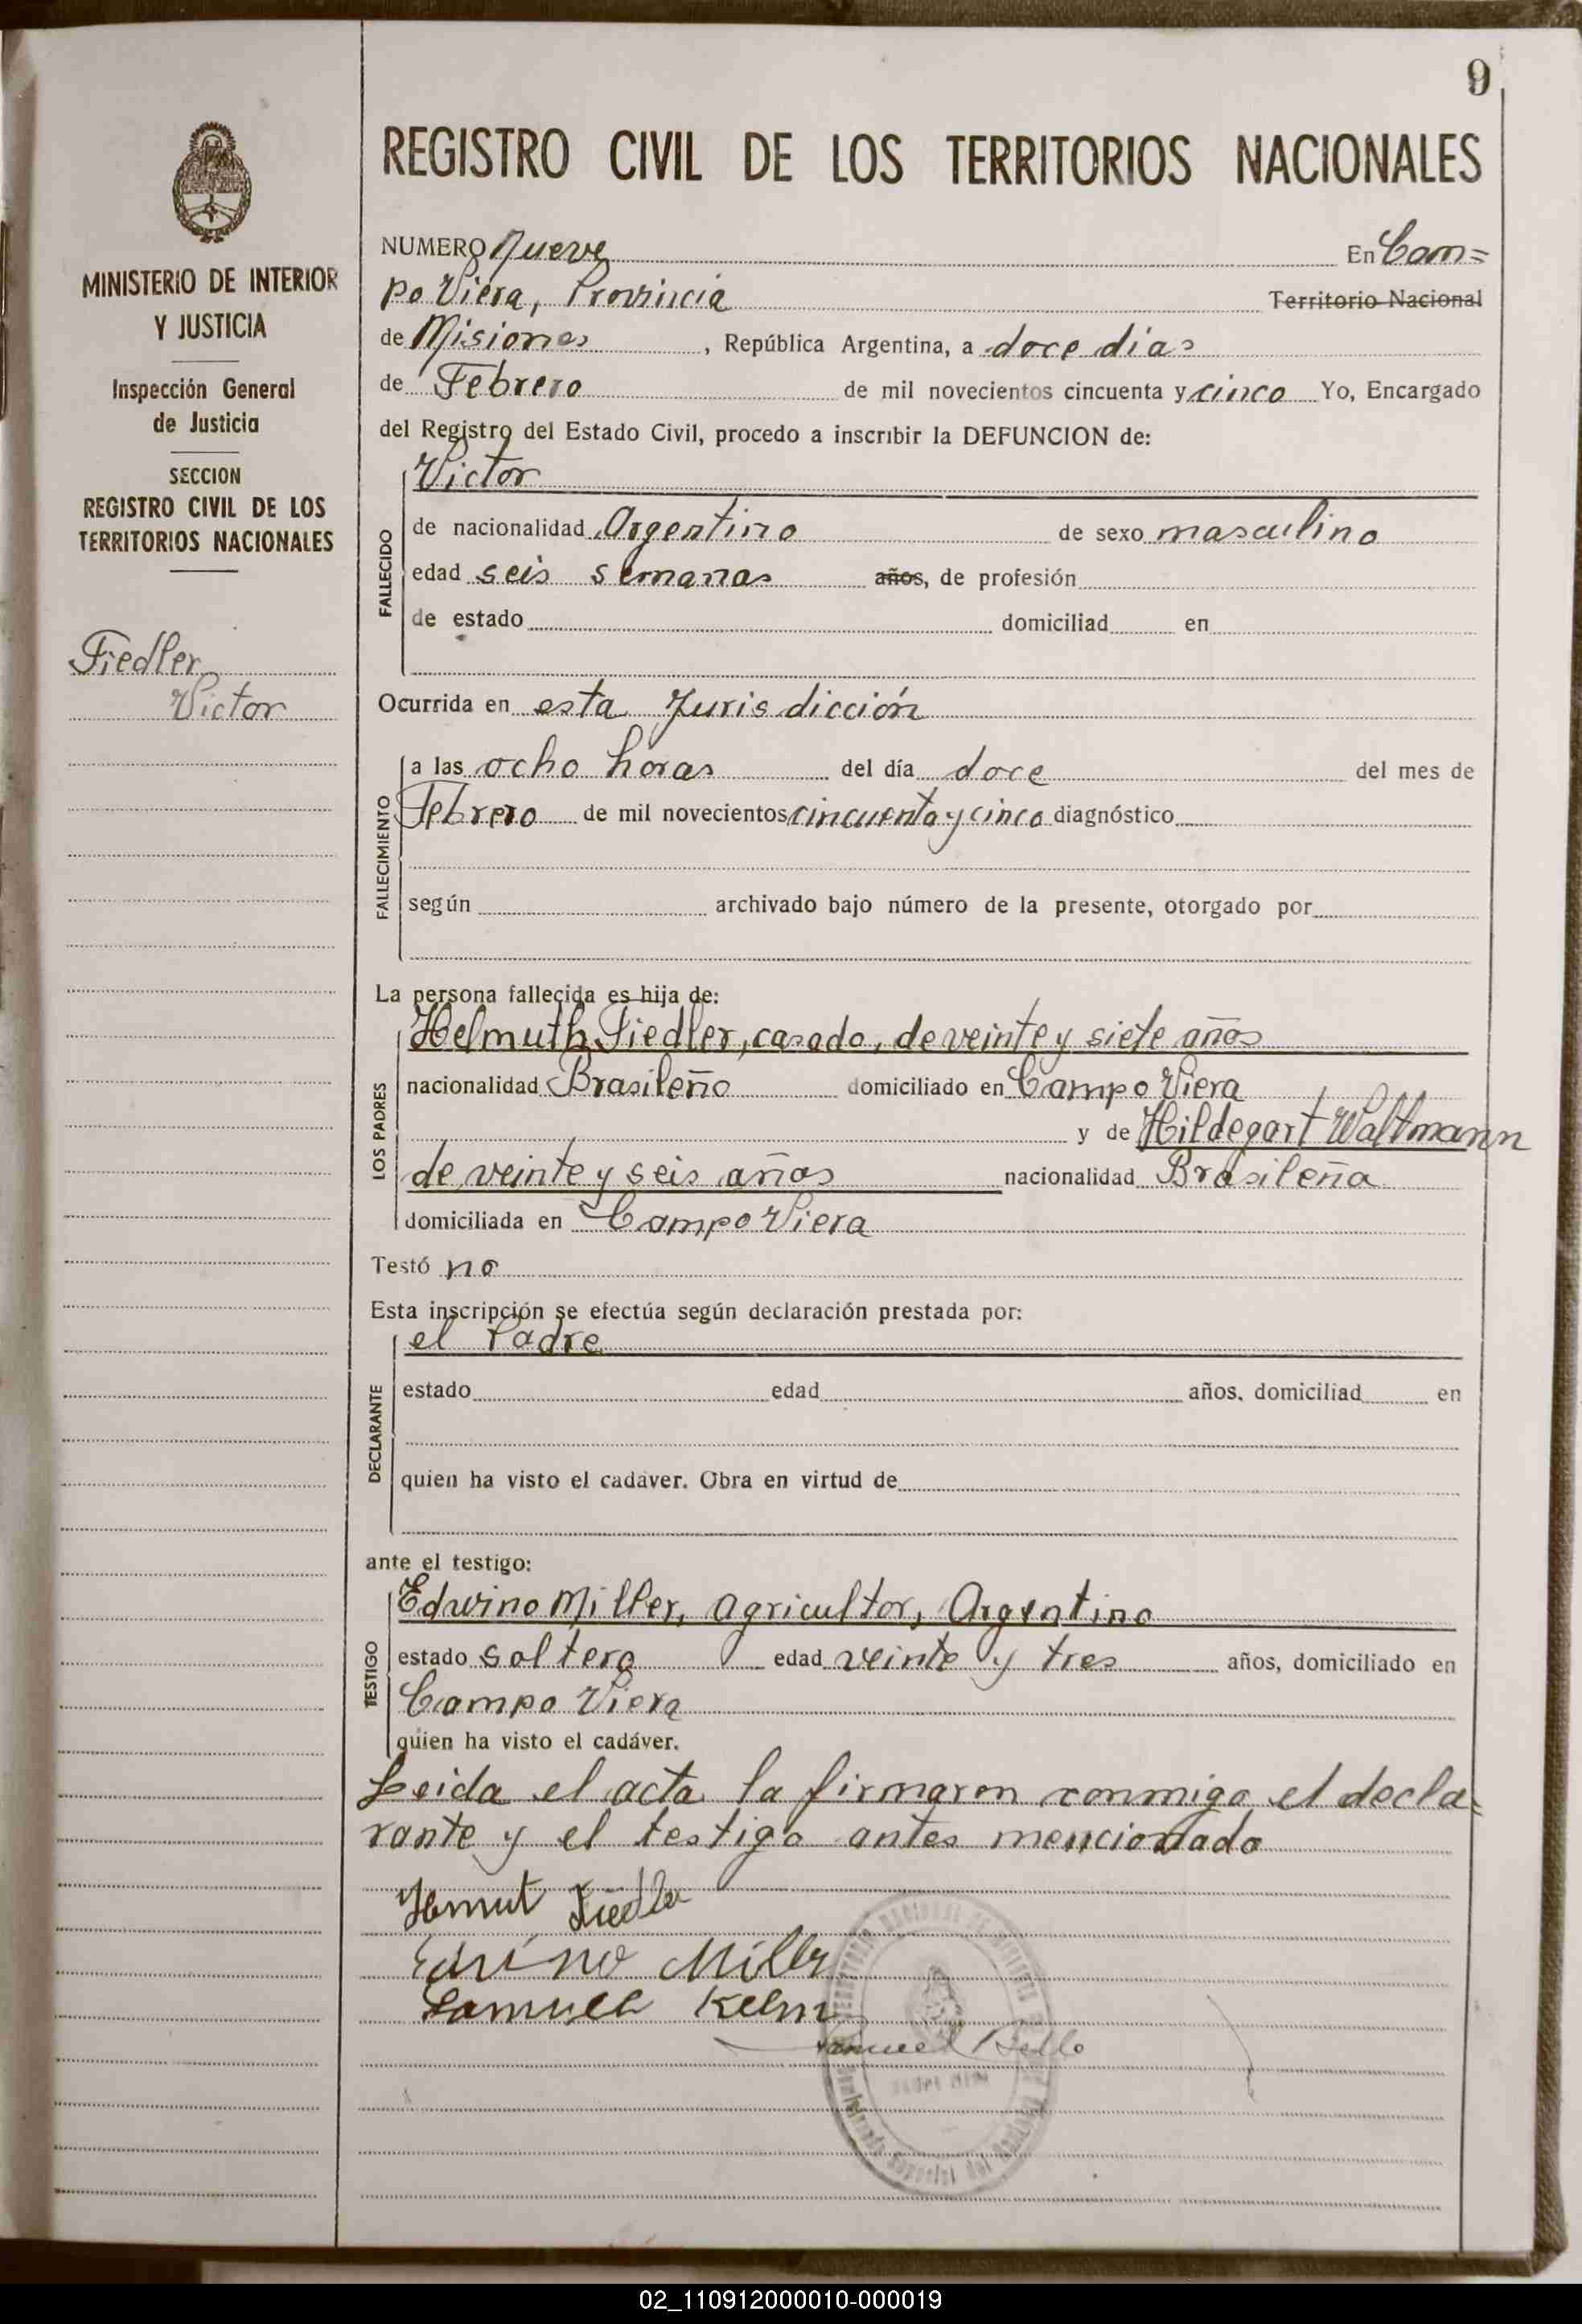 9
REGISTRO CIVIL DE LOS TERRITORIOS NACIONALES
MINISTERIO DE INTERIOR
Y JUSTICIA
Inspección General
de Justicia
SECCION
REGISTRO CIVIL DE LOS
TERRITORIOS NACIONALES
Fiedler
Victor
NUMERO Nueve En Cam=
po Viera, Provincia Territorio Nacional
de Misiones, República Argentina, a doce dias
de Febrero de mil novecientos cincuenta y cinco Yo, Encargado
del Registro del Estado Civil, procedo a inscribir la DEFUNCION de:
FALLECIDO
Victor
de nacionalidad Argentino de sexo masculino
edad seis semanas años, de profesión
de estado domiciliad en
Ocurrida en esta Jurisdicción
FALLECIMIENTO
a las ocho horas del día doce del mes de
Febrero de mil novecientos cincuenta y cinco diagnóstico
según archivado bajo número de la presente, otorgado por
La persona fallecida es hija de:
LOS PADRES
Helmuth Fiedler, casado, de veinte y siete años
nacionalidad Brasileño domiciliado en Campo Viera
y de Hildegart Waltmann
de veinte y seis años nacionalidad Brasileña
domiciliada en Campo Viera
Testó no
Esta inscripción se efectúa según declaración prestada por:
DECLARANTE
el Padre
estado edad años, domiciliad en
quien ha visto el cadáver. Obra en virtud de
ante el testigo:
TESTIGO
Edwino Miller, agricultor, Argentino
estado soltero edad veinte y tres años, domiciliado en
Campo Viera
quien ha visto el cadáver.
Leida el acta la firmaron conmigo el decla=
rante y el testigo antes mencionado
Hemut Fiedler
Edvino Miller
Samuel Kelm
Samuel
02_110912000010-000019